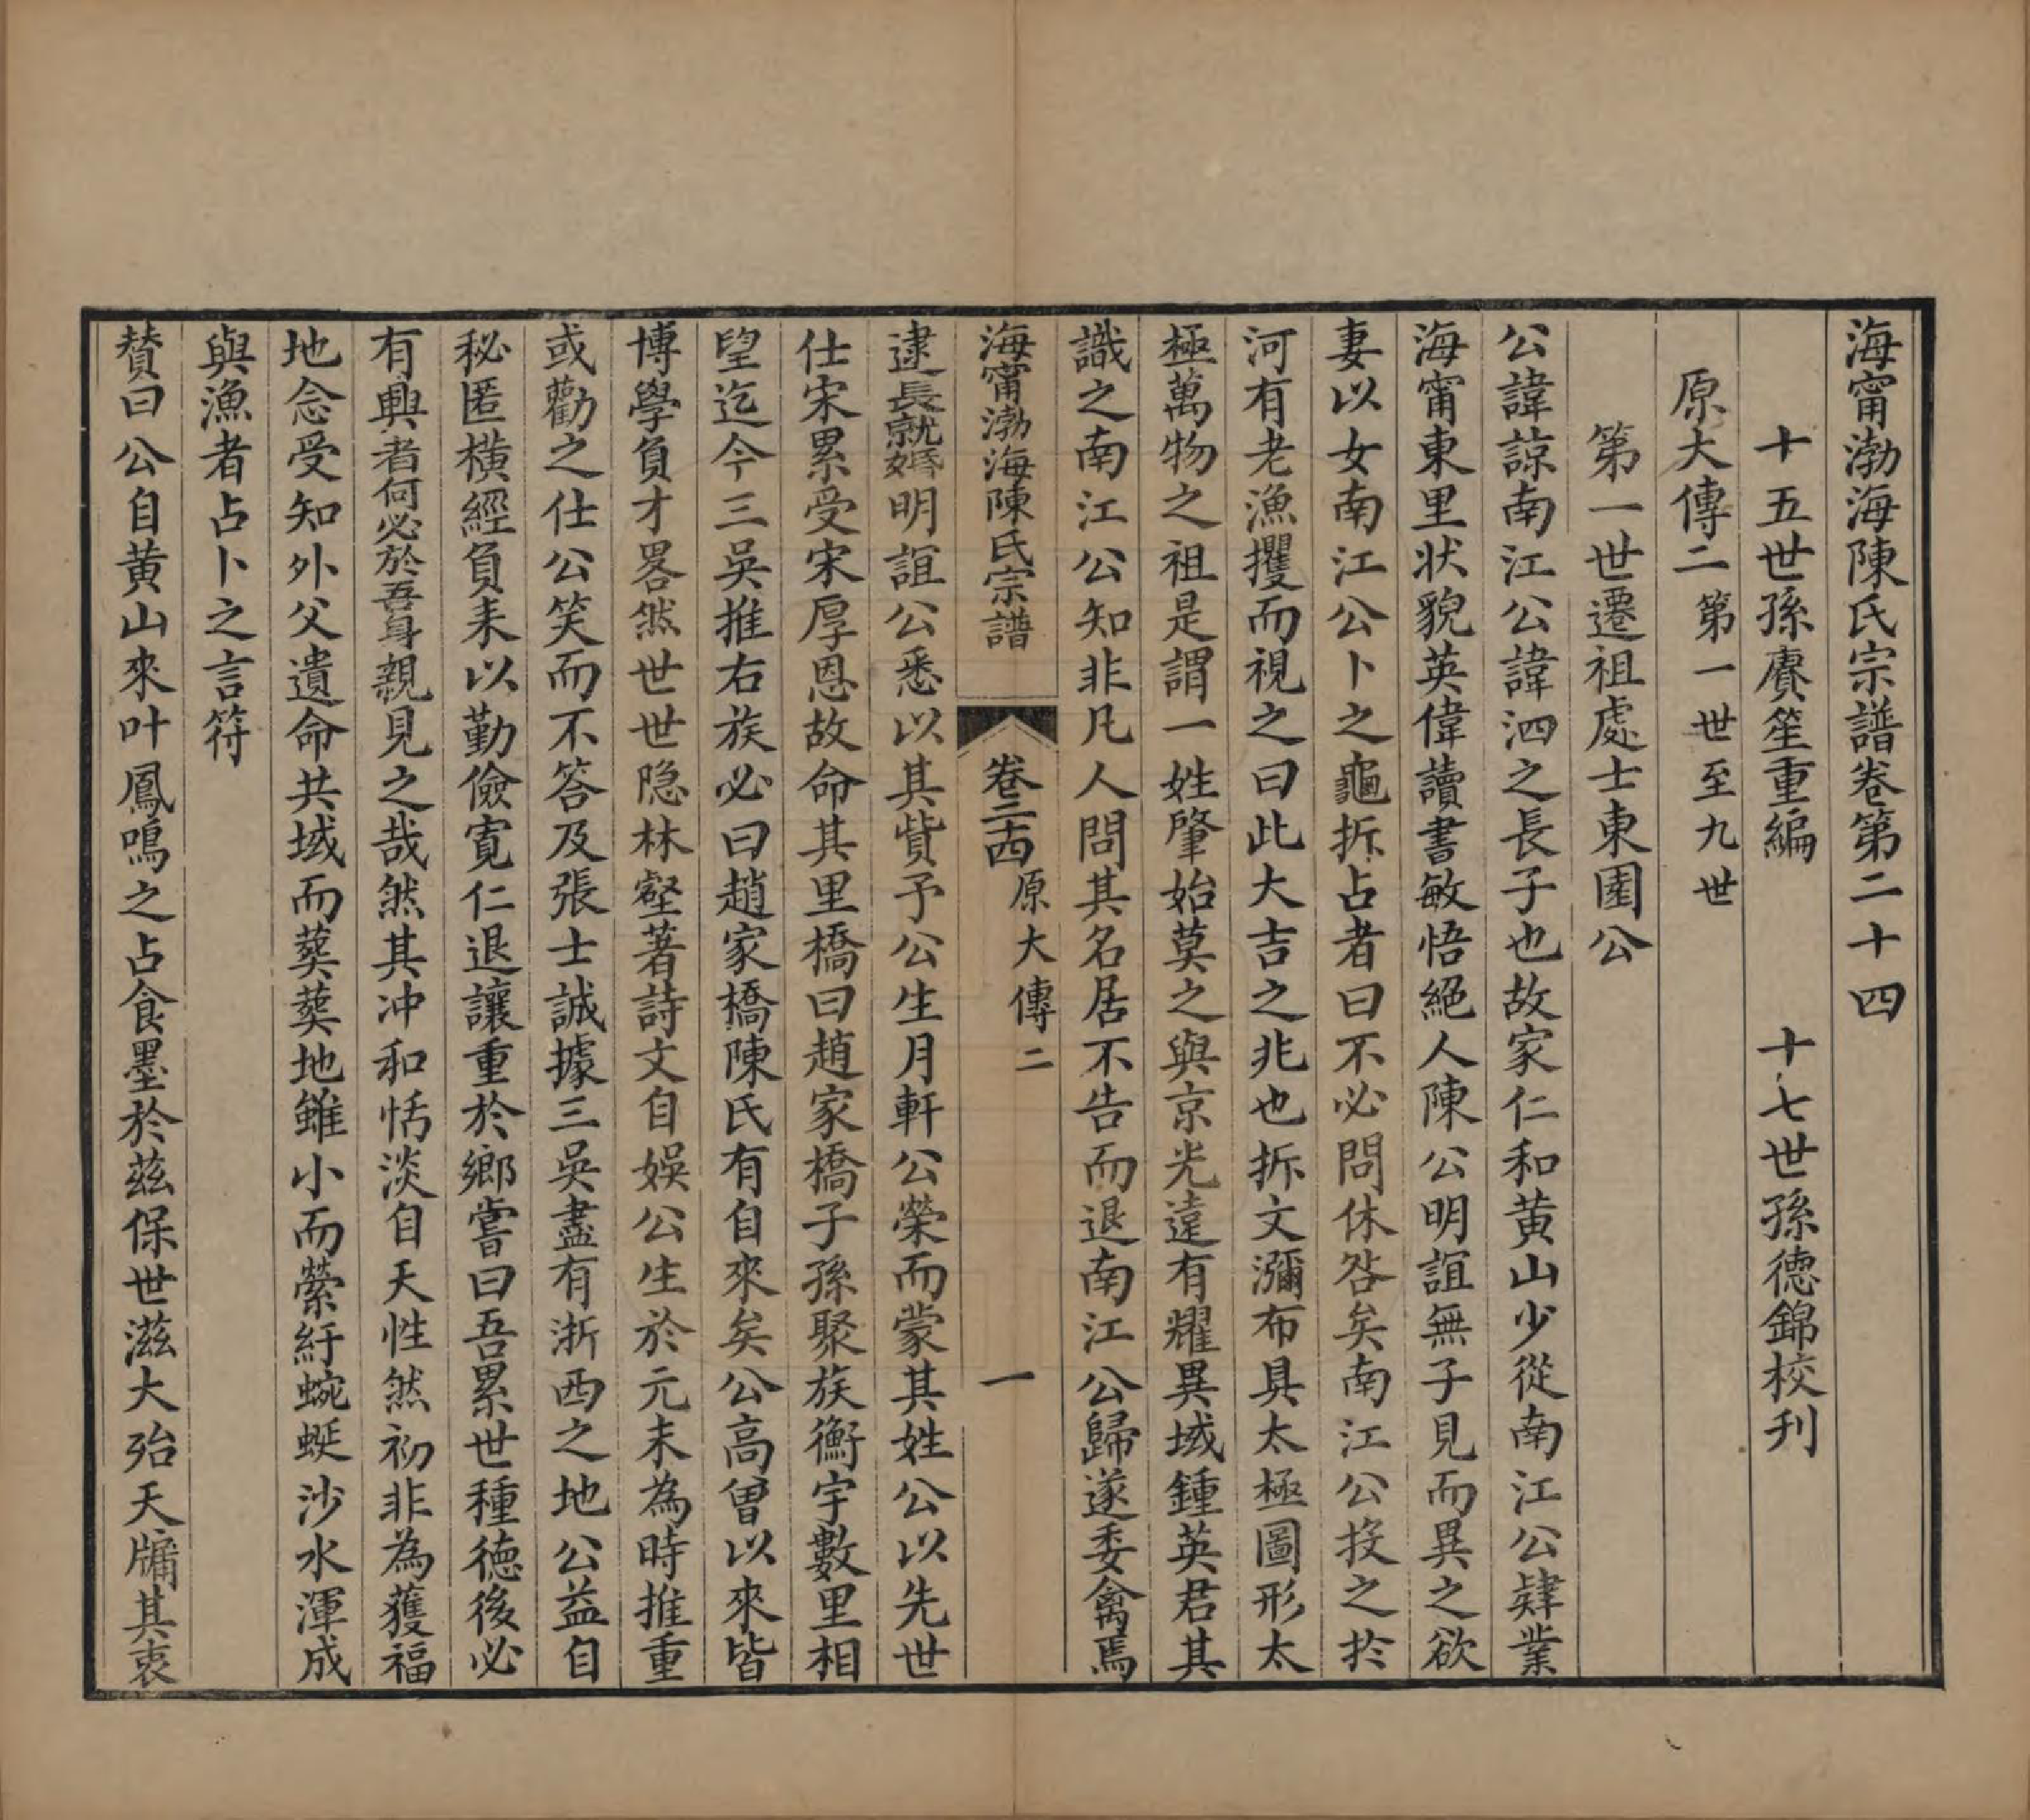 海甯渤海陳氏宗譜卷第二十四
十五世孫賡笙重編　十七世孫德錦校刋
原大傳二　第一世至九世
第一世遷祖處士東園公
公諱諒南江公諱泗之長子也故家仁和黄山少從南江公肄業
海甯東里狀貌英偉讀書敏悟絕人陳公明誼無子見而異之欲
妻以女南江公卜之龜拆占者曰不必問休咎矣南江公投之於
河有老漁攫而視之曰此大吉之兆也拆文瀰布具太極圖形太
極萬物之祖是謂一姓肇始莫之與京光遠有耀異域鍾英君其
識之南江公知非凡人問其名居不告而退南江公歸遂委禽焉
海甯渤海陳氏宗譜　卷二十四　原大傳二　一
逮長就婚明誼公悉以其貲予公生月軒公榮而蒙其姓公以先世
仕宋累受宋厚恩故命其里橋曰趙家橋子孫聚族衡宇數里相
望迄今三吳推右族必曰趙家橋陳氏有自來矣公高曾以來皆
博學負才畧然世世隐林壑著詩文自娛公生於元末為時推重
或勸之仕公笑而不答及張士誠據三吳盡有浙西之地公益自
秘匿橫經負耒以勤儉寬仁退讓重於鄉嘗曰吾累世種德後必
有興者何必於吾身親見之哉然其冲和恬淡自天性然初非為獲福
地念受知外父遺命共域而葬葬地雖小而縈紆蜿蜒沙水渾成
與漁者占卜之言符
贊曰公自黄山來叶鳳鳴之占食墨於茲保世滋大殆天牖其衷